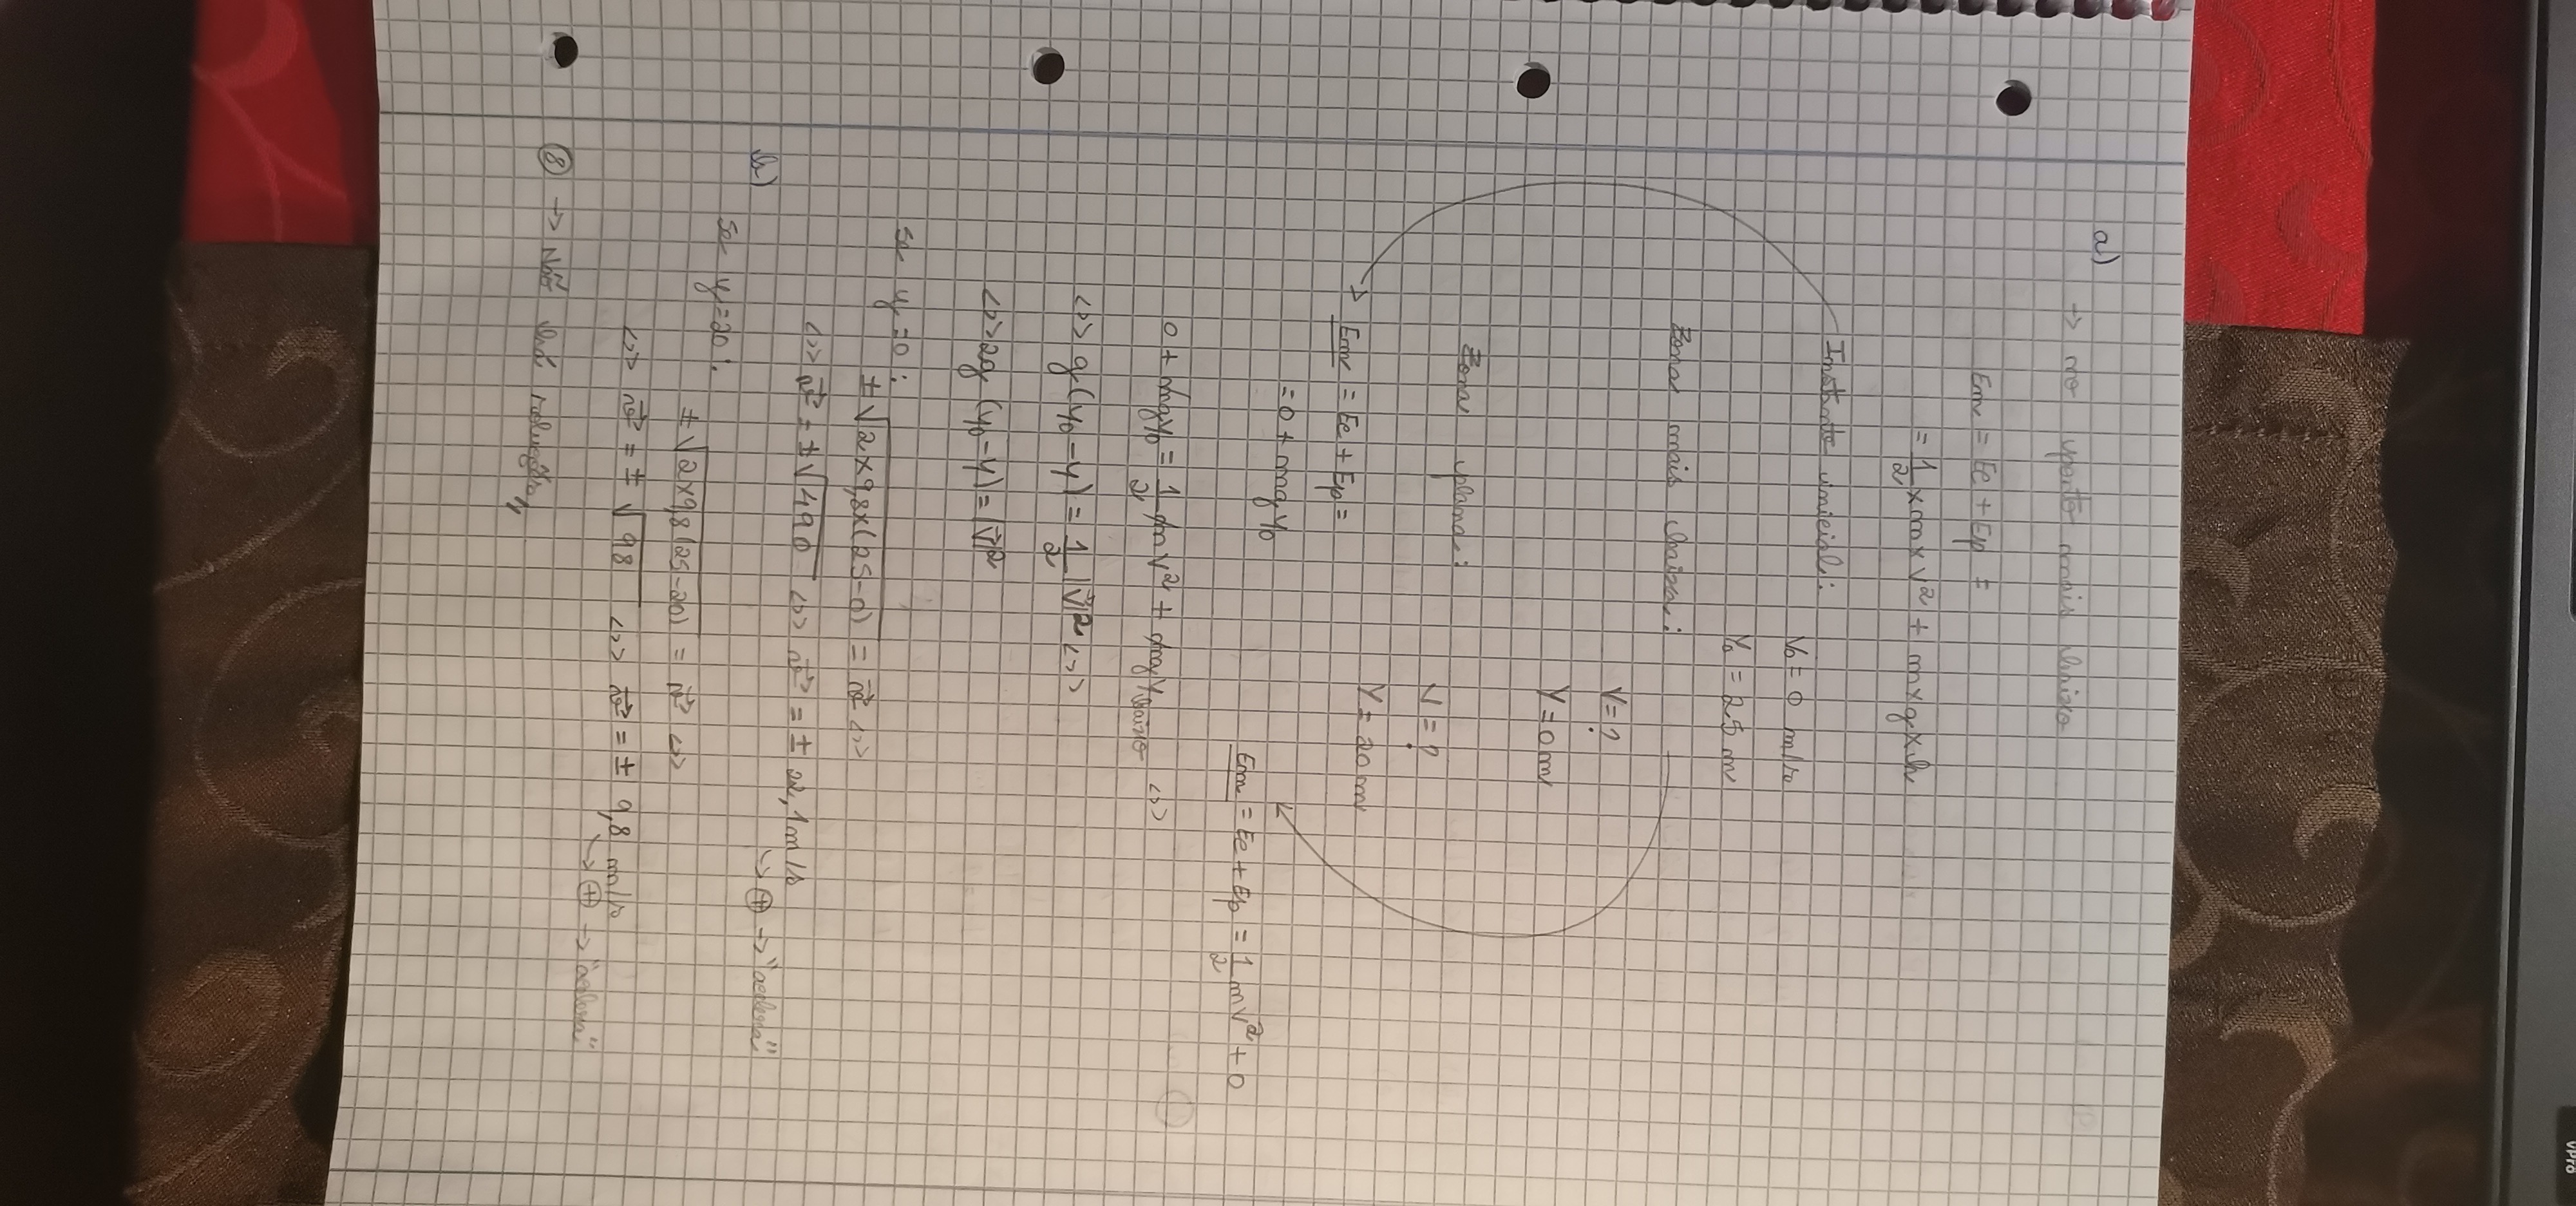 a) → no ponto mais baixo
Em = Ec + Ep =
= 1/2 x m x v² + m x g x h
Instante inicial:
V₀ = 0 m/s
Y₀ = 25 m
Zona mais baixa:
V = ?
Y = 0 m
Zona plana:
V = ?
Y = 20 m
Em = Ec + Ep =
= 0 + mgy₀
Em = Ec + Ep = 1/2 mv² + 0
0 + mgy₀ = 1/2 mv² + mgy baixo <=>
<=> g(y₀ - y) = 1/2 |v⃗|² <=>
<=> 2g (y₀ - y) = |v⃗|²
Se y = 0:
±√2x9,8x(25-0) = v⃗ <=>
<=> v⃗ = ±√490 <=> v⃗ = ± 22,1 m/s
→ ⊕ → "acelera"
b)
Se y = 20:
±√2x9,8(25-20) = v⃗ <=>
<=> v⃗ = ± √98 <=> v⃗ = ± 9,8 m/s
→ ⊕ → "acelera"
⑧ → Não há resolução,,
vPro